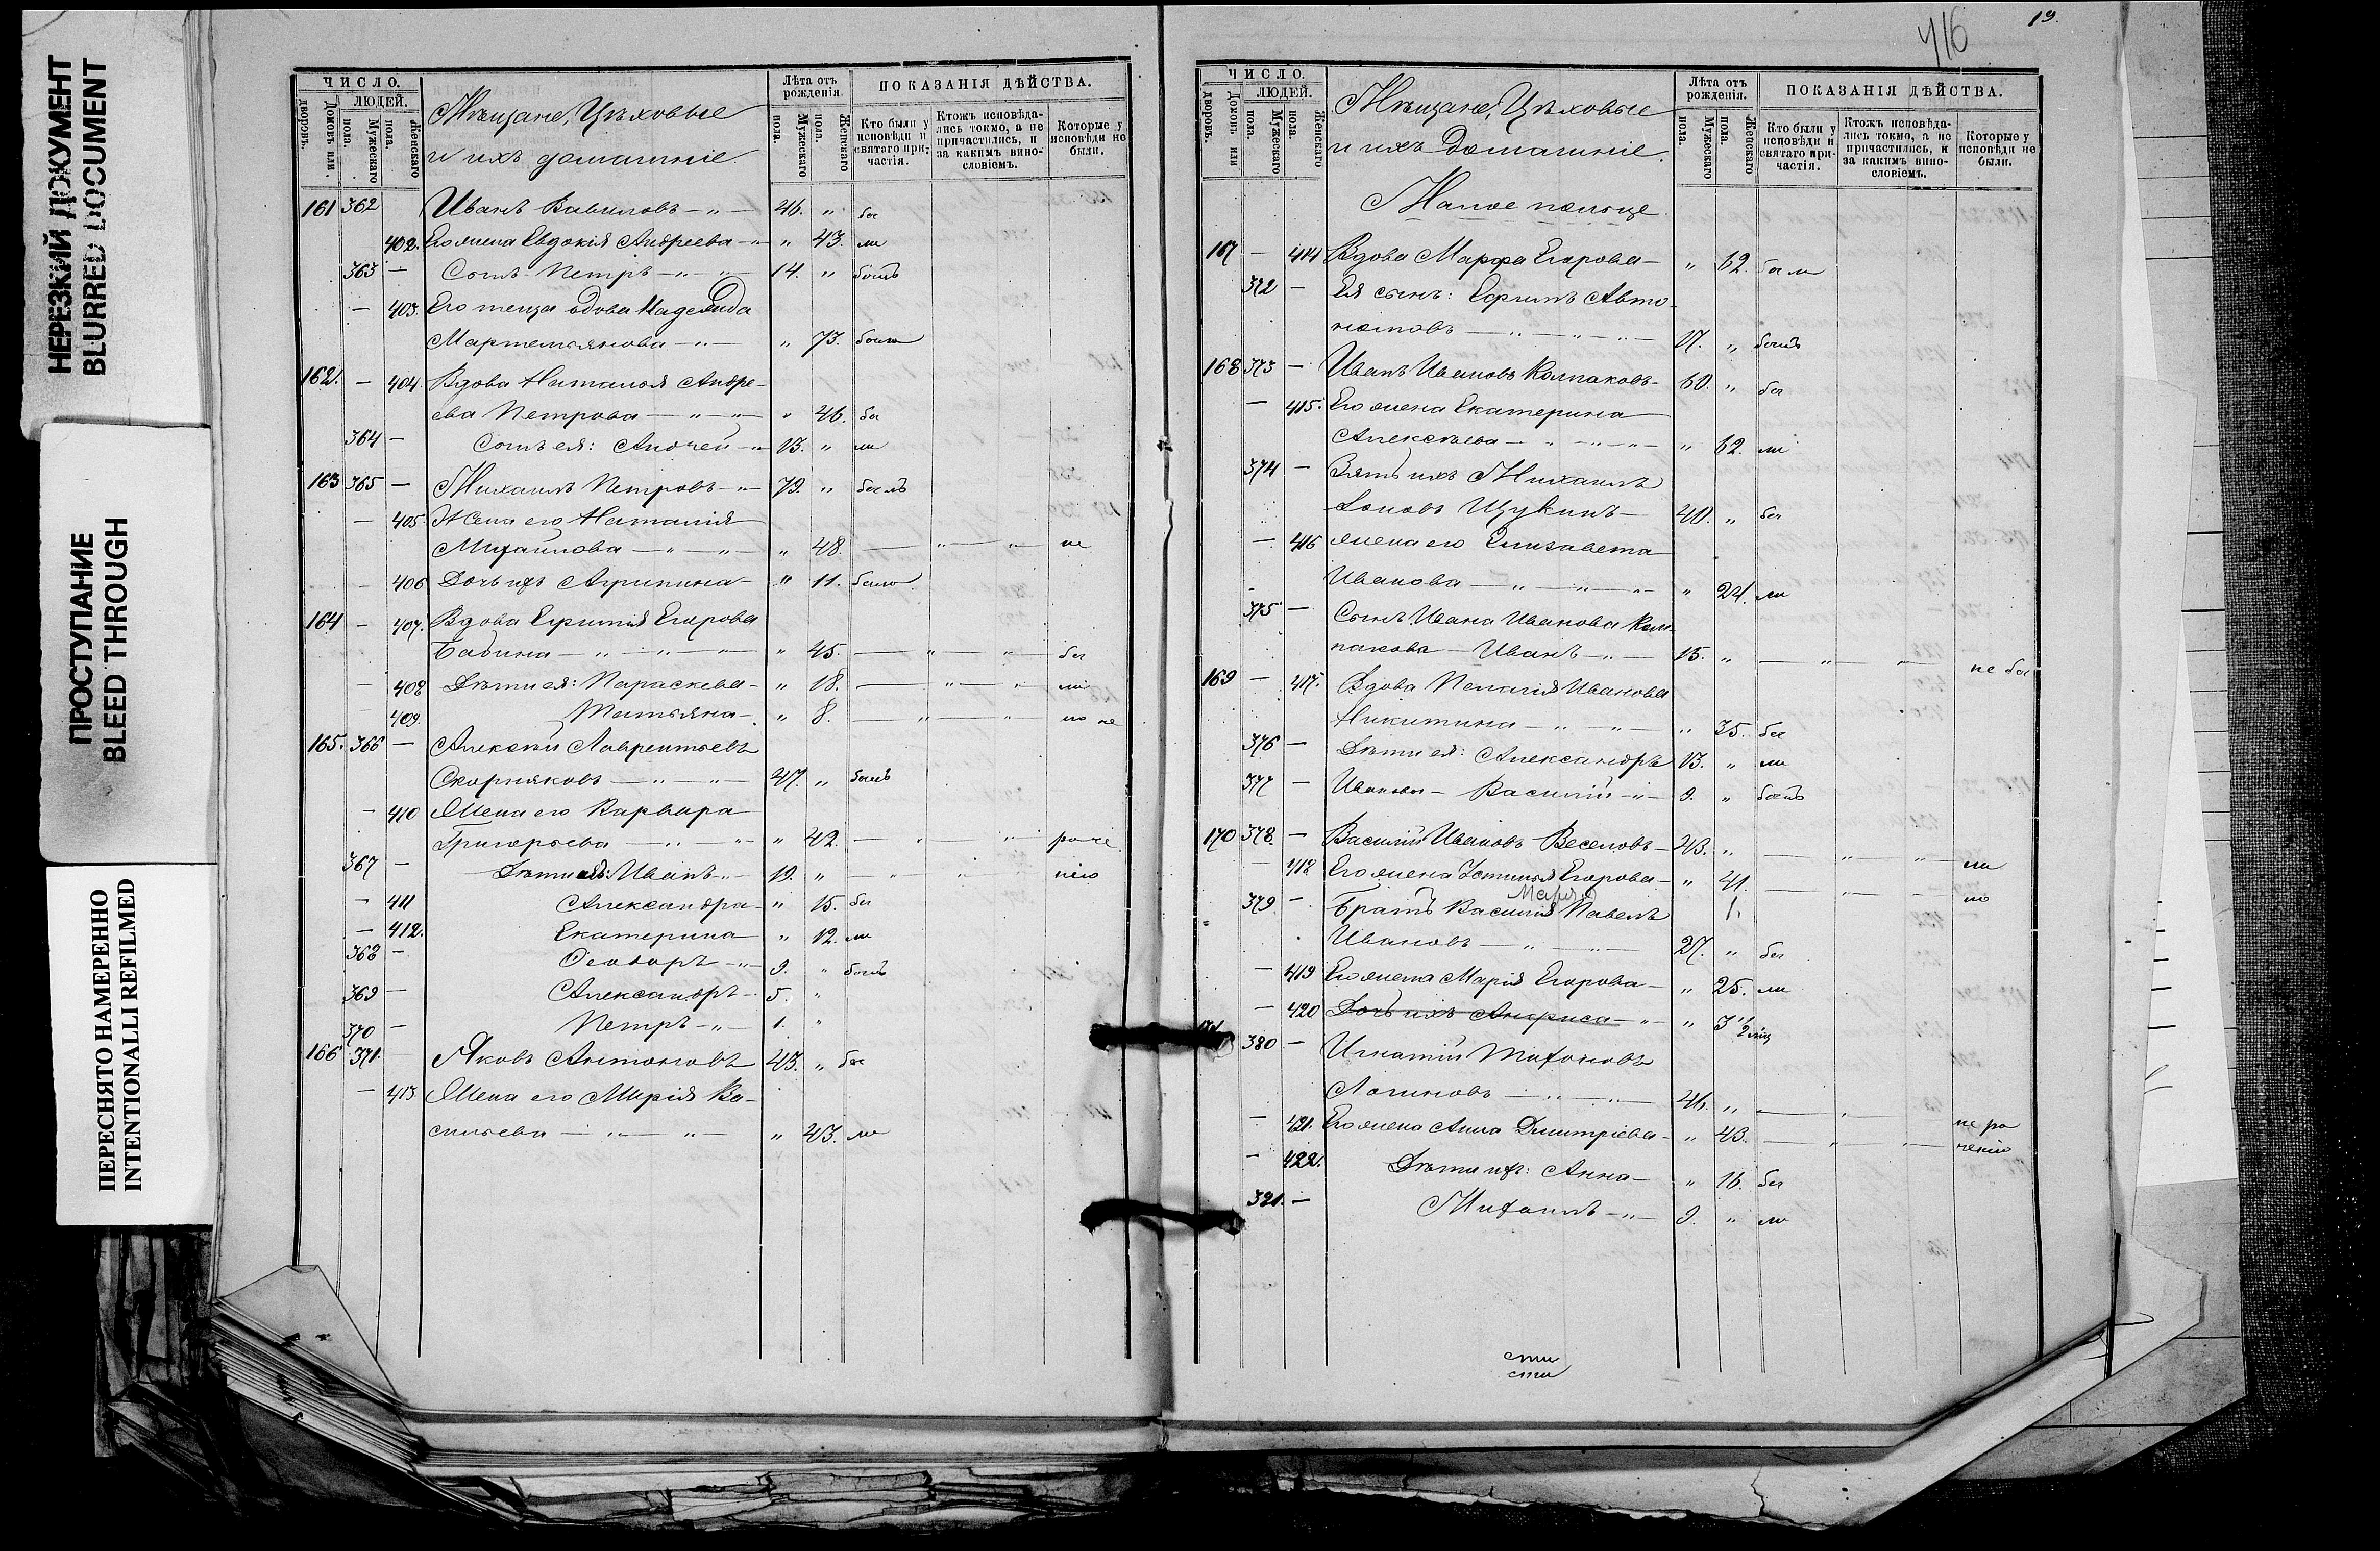 НЕРЕЗКИЙ ДОКУМЕНТ
BLURRED DOCUMENT
ПРОСТУПАНИЕ
BLEED THROUGH
ПЕРЕСНЯТО НАМЕРЕННО
INTENTIONALLI REFILMED
ЧИСЛО.
Домовъ или дворовъ.
ЛЮДЕЙ.
Мужескаго пола.
Женскаго пола.
Мѣщане, Цѣховые
и ихъ домашніе
Лѣта отъ рожденія
Мужескаго пола.
Женскаго пола.
ПОКАЗАНІЯ ДѢЙСТВА.
Кто были у исповѣди и святаго причастія.
Ктожъ исповѣдались токмо, а не причастились, и за какимъ винословіемъ.
Которые у исповѣди не были.
161 362 Иванъ Вавиловъ — " — 46. " бы
402. Его жена Евдокія Андреева — " " 43. ли
363 — Сынъ Петръ — " — " — 14. " былъ
— 403. Его теща вдова Надежда
Мартемьянова — " — " 73. была
162. — 404. Вдова Наталья Андре-
ева Петрова — " — " — " 46. бы
364 — Сынъ ея: Андрей — " 13. " ли
163 365 — Михаилъ Петровъ — " 79. " былъ
— 405. Жена его Наталія
Михайлова — " — " — " 48. — " — " — не
— 406 Дочь ихъ Агрипина — " 11. была
164 — 407. Вдова Ефимія Егорова
Бабина — " — " — " — " 45. — " — " — бы
— 408 Дѣти ея: Параскева — " 18. — " — " ли
409. Татьяна — " 8. — " — " по не
165. 366 — Алексѣй Лаврентьевъ
Скорняковъ — " — " — 47. " былъ
— 410 Жена его Варвара
Григорьева — " — " — " 42. — " — " — раче
367 — Дѣти ихъ: Иванъ — " 19. " — " — " нію
— 411 Александра — " 15. бы
— 412. Екатерина — " 12. ли
368 — Ѳеодоръ — " — 9. " былъ
369 — Александръ — 5. "
370 — Петръ — " — 1. "
166 371. — Яковъ Антоновъ 43. " бы
— 413 Жена его Марія Ва-
сильева — " — " — " 43. ли
416
19.
ЧИСЛО.
Домовъ или дворовъ.
ЛЮДЕЙ.
Мужескаго пола.
Женскаго пола.
Мѣщане, Цѣховые
и ихъ Домашніе.
Лѣта отъ рожденія.
Мужескаго пола.
Женскаго пола.
ПОКАЗАНІЯ ДѢЙСТВА.
Кто были у исповѣди и святаго причастія.
Ктожъ исповѣдались токмо, а не причастились, и за какимъ винословіемъ.
Которые у исповѣди не были.
Малое польце
167 — 414 Вдова Марфа Егорова — " 62. была
372 — Ея сынъ: Ефимъ Авто-
номовъ — " — " — " — 17. " былъ
168 373 — Иванъ Ивановъ Колпаковъ — 60. " бы
— 415. Его жена Екатерина
Алексѣева — " — " — " — " 62. ли
374 — Зять ихъ Михаилъ
Іоновъ Щукинъ — 40. " бы
— 416 жена его Елизавета
Иванова — " — " — " — " 24. ли
375 — Сынъ Ивана Иванова Кол-
пакова — Иванъ — " — 15. " — " — " — не бы
169 — 417. Вдова Пелагія Иванова
Никитина — " — " — " 35. бы
376 — Дѣти ея: Александръ 13. " ли
377 — Ивановы — Василій — " — 9. " былъ
170 378 — Василій Ивановъ Веселовъ — 43. " — " — " — ли
— 418 Его жена Устинья Егорова — " 41. — " — " по
Марія 1.
379 — Братъ Василія Павелъ
Ивановъ — " — " — 27. " бы
— 419 Его жена Марія Егорова — " 25. ли
— 420 Дочь ихъ Анфиса — " — " 3 1/2 мѣс
171 380 — Игнатій Тихоновъ
Логиновъ — " — " — 46. " — " —
— 421. Его жена Анна Димитріева — " 43. — " — " — не ра
— 422. Дѣти ихъ: Анна — " 16. бы ченію
321. — Михаилъ — " — 9. " ли